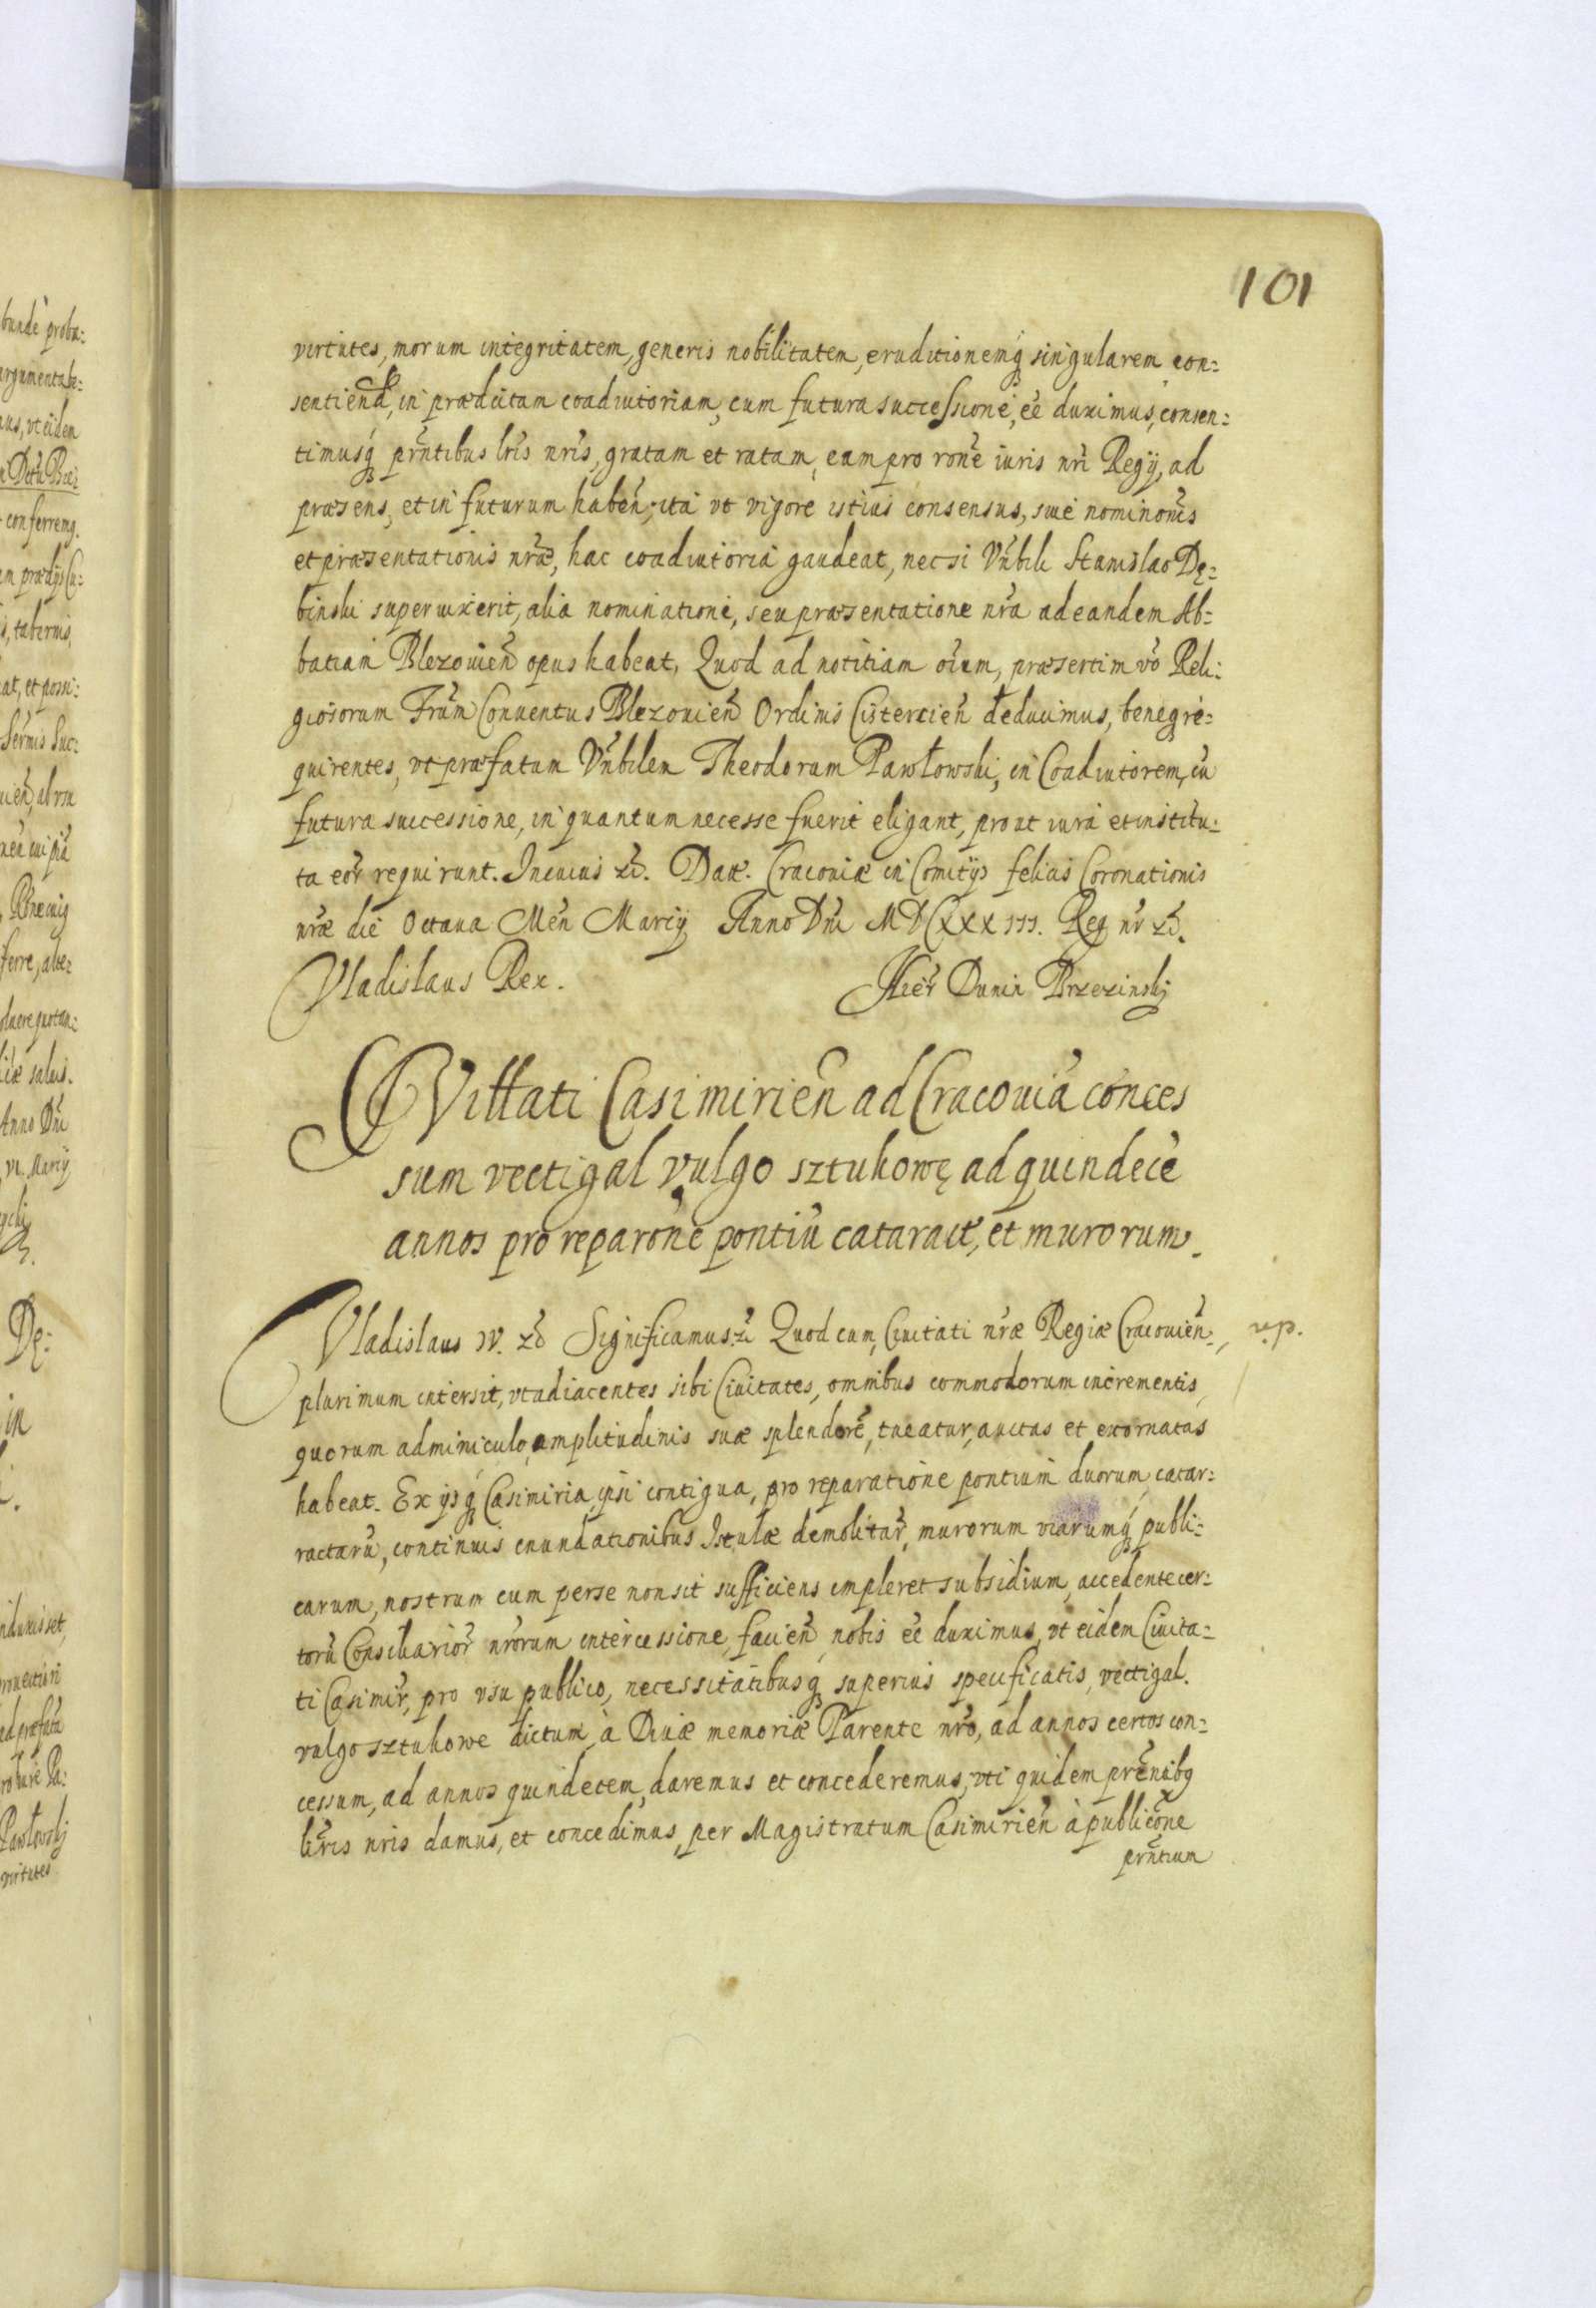 101
virtutes, morum integritatem, generis nobilitatem, eruditionemq́ singularem con:
sentiend, in prædictam coadiutoriam, cum futura successione, eẽ duximus, consen:
timusq́ prñtibus lris nris, gratam et ratam, eam pro rone iuris nri Regÿ, ad
præsens, et in futurum habeñ, ita vt vigore istius consensus, siue nominonis
et præsentationis nræ, hac coadiutoria gaudeat, nec si Vñbili Stanislao Dę:
binski superuixerit, alia nominatione, seu præsentatione nra ad eandem Ab:
batiam Blezouieñ opus habeat, Quod ad notitiam oĩum, præsertim vo Reli:
giosorum Frum Conuentus Blezouieñ Ordinis Cistercieñ deducimus, benegre:
quirentes, vt præfatum Vñbilem Theodorum Pawłowski, in Coadiutorem, cũ
futura successione, in quantum necesse fuerit eligant, prout iura et institu:
ta eor requirunt. In cuius &c. Datt. Cracouiæ in Comitÿs felicis Coronationis
nræ die Octaua Meñ Marcÿ Anno Dni MDCXXXIII. Reg nr &c.
Vladislaus Rex.
Hier Dunin Brzezinskj
CVittati Casimirieñ ad Cracouiã conces
sum vectigal vulgo sztukowę ad quindecẽ
annos pro reparone pontiũ cataract, et murorum.
Vladislaus IV. &c Significamus &c Quod cum, Ciuitati nræ Regiæ Cracouieñ,
plurimum intersit, vt adiacentes sibi Ciuitates, omnibus commodorum incrementis,
quorum adminiculo, amplitudinis suæ splendorẽ, tueatur, auctas et exornatas
habeat. Ex ÿsq́ Casimiria, ipsi contigua, pro reparatione pontium duorum, catar:
ractarũ, continuis inundationibus Istulæ demolitar, murorum viarumq́ publi:
carum, nostrum cum per se non sit sufficiens impleret subsidium, accedente cer:
torũ Consiliarior nrorum intercessione, facieñ nobis eẽ duximus, vt eidem Ciuita:
ti Casimir, pro vsu publico, necessitatibusq́ superius specificatis, vectigal.
vulgo sztukowe dictum, à Diuæ memoriæ Parente nro, ad annos certos con:
cessum, ad annos quindecem, daremus et concederemus, vti quidem prẽnibq
liris nris damus, et concedimus, per Magistratum Casimirieñ à publicõne
prñtium